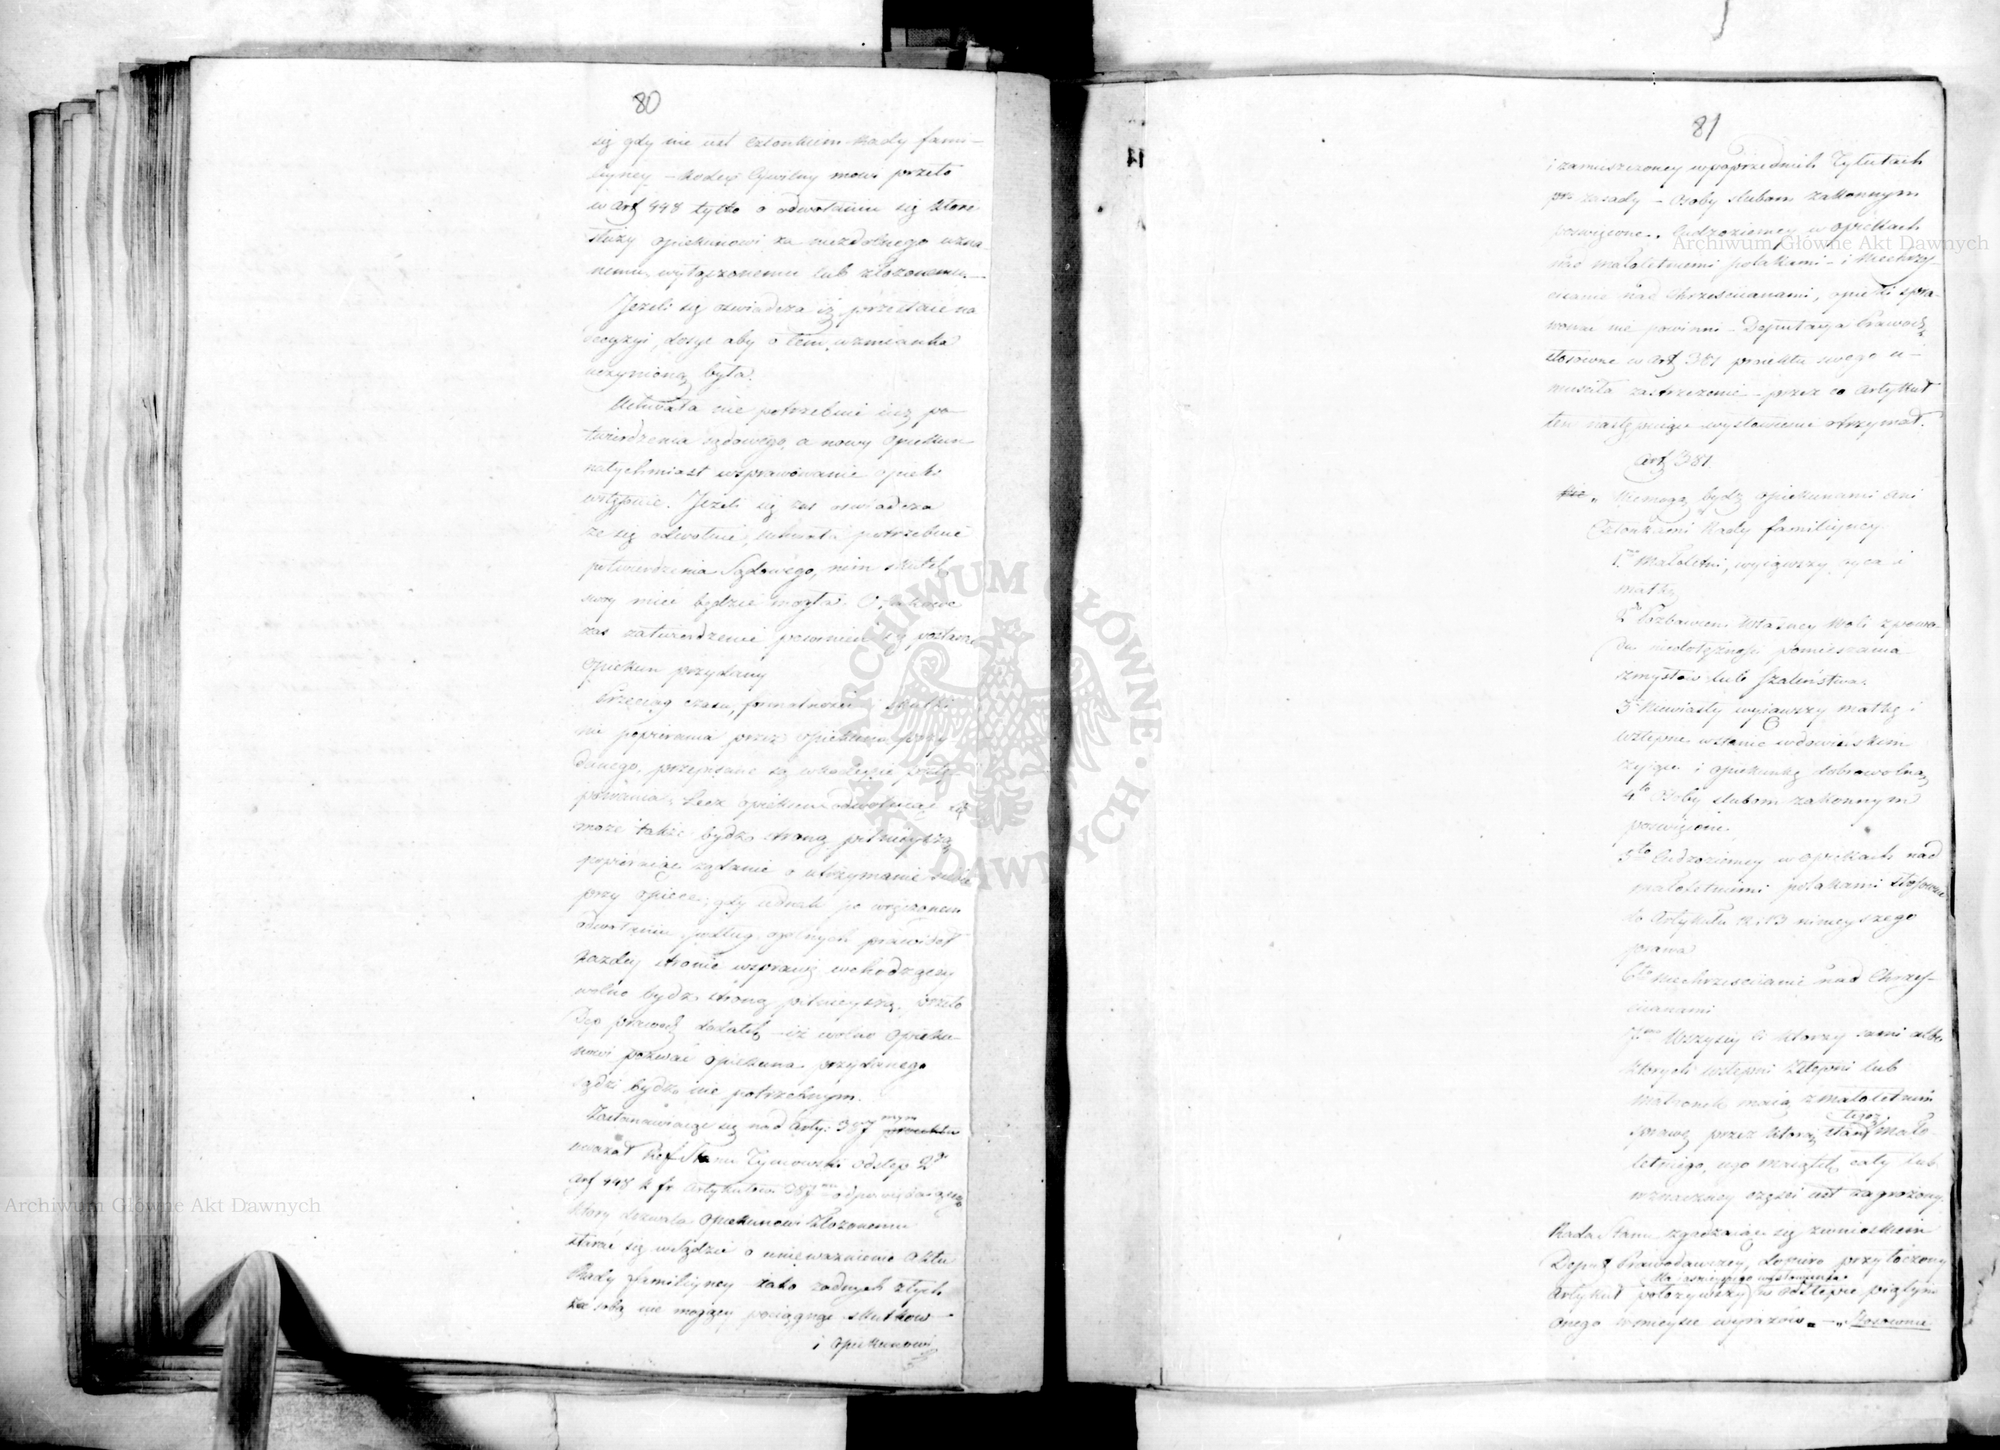 80
się gdy nie jest Członkiem Rady fami-
liyney – Kodex Cywilny mowi przeto
w Art 448 tylko o odwołaniu się które
służy opiekunowi za niezdolnego uzna
nemu, wyłączonemu lub złożonemu.—
Jeżeli się oświadcza iż przestaie na
decyzyi, dosyć aby o tem wzmianka
uczyniona była.
Uchwała nie potrzebuie iuż po-
twierdzenia sądowego, a nowy Opiekun
natychmiast w sprawowanie opieki
wstąpnie. Jeżeli się zas oswiadcza
ze się odwołuie, uchwała potrzebuie
potwierdzenia Sądowego, nim skutek
swoy mieć będzie mogła. O takowe
zas zatwierdzenie powinien się postarać
Opiekun przydany
Przeciąg czasu, formalnosci i skutki
nie popierania przez Opiekuna przy
danego, przepisane są w kodexie postę-
powania. Lecz opiekun odwołuiąc się
może także bydź stroną pilnieyszą
popieraiąc żądanie o utrzymanie siebie
przy opiece; gdy iednak po wręczonem
odwołaniu podług ogolnych prawideł
każdey stronie w sprawę wchodzącey
wolno bydź stroną pilnieyszą, przeto
Dep prawod. dodatek – iż wolno Opieku-
nowi pozwać opiekuna przydanego
sądzi bydź nie potrzebnym.
Zastanawiaiąc się nad Arty: 387 mym projektu
uważał Ref Stanu Tymowski odstęp 2gi
Art 448 K fr Artykułowi 387 mu odpowiadaiącego
ktory dozwala Opiekunowi złożonemu
starać się w sądzie o unieważnienie Aktu
Rady familiyney iako żadnych złych
za sobą nie mogący pociągnąć skutkow—
i Opiekunowi
81
i zamieszczoney w poprzednich Tytułach
zasady – Osoby slubom zakonnym
poswięcone, Cudzoziemcy w opiekach
nad małoletniemi polakami – i Niechrze-
scianie nad Chrześcianami, opieki spra-
wować nie powinni – Deputacya Prawod.
stosowne w Art 381 proiektu swego u-
mieściła zastrzeżenie – przez co Artykuł
ten następuiące wysłowienie otrzymał.
Art 381.
„ Niemogą bydź opiekunami ani
Członkami Rady familiyney.
1mo Małoletni, wyiąwszy oyca i
matkę
2do Pozbawieni Własney Woli z powo-
du niedołężności pomieszania
zmysłów lub szaleństwa.
3o Niewiasty wyiąwszy matkę i
wstępne w stanie wdowieńskim
żyiące i opiekunkę dobrowolną
4to Osoby slubom zakonnym
poswięcone
5to Cudzoziemcy w opiekach nad
małoletniemi polakami stosownie
do Artykułu 12 i 13 ninieyszego
prawa
6to Niechrześcianie nad Chrześ-
cianami
7mo Wszyscy ci ktorzy sami albo
których wstępni Zstępni lub
małżonek maią z małoletnim
sprawę przez którą stan tegoż mało-
letniego, iego maiątek cały lub
w znaczney części iest zagrożony.
Rada Stanu zgadzaiąc się z wnioskiem
Deput Prawodawczey, dopiero przytoczony
Artykuł położywszy dla iasnieyszego wysłowienia w odstępie piątym
onego w mieysce wyrazów „ – „ Stosownie
Archiwum Główne Akt Dawnych
Archiwum Główne Akt Dawnych
ARCHIWUM GŁÓWNE AKT DAWNYCH